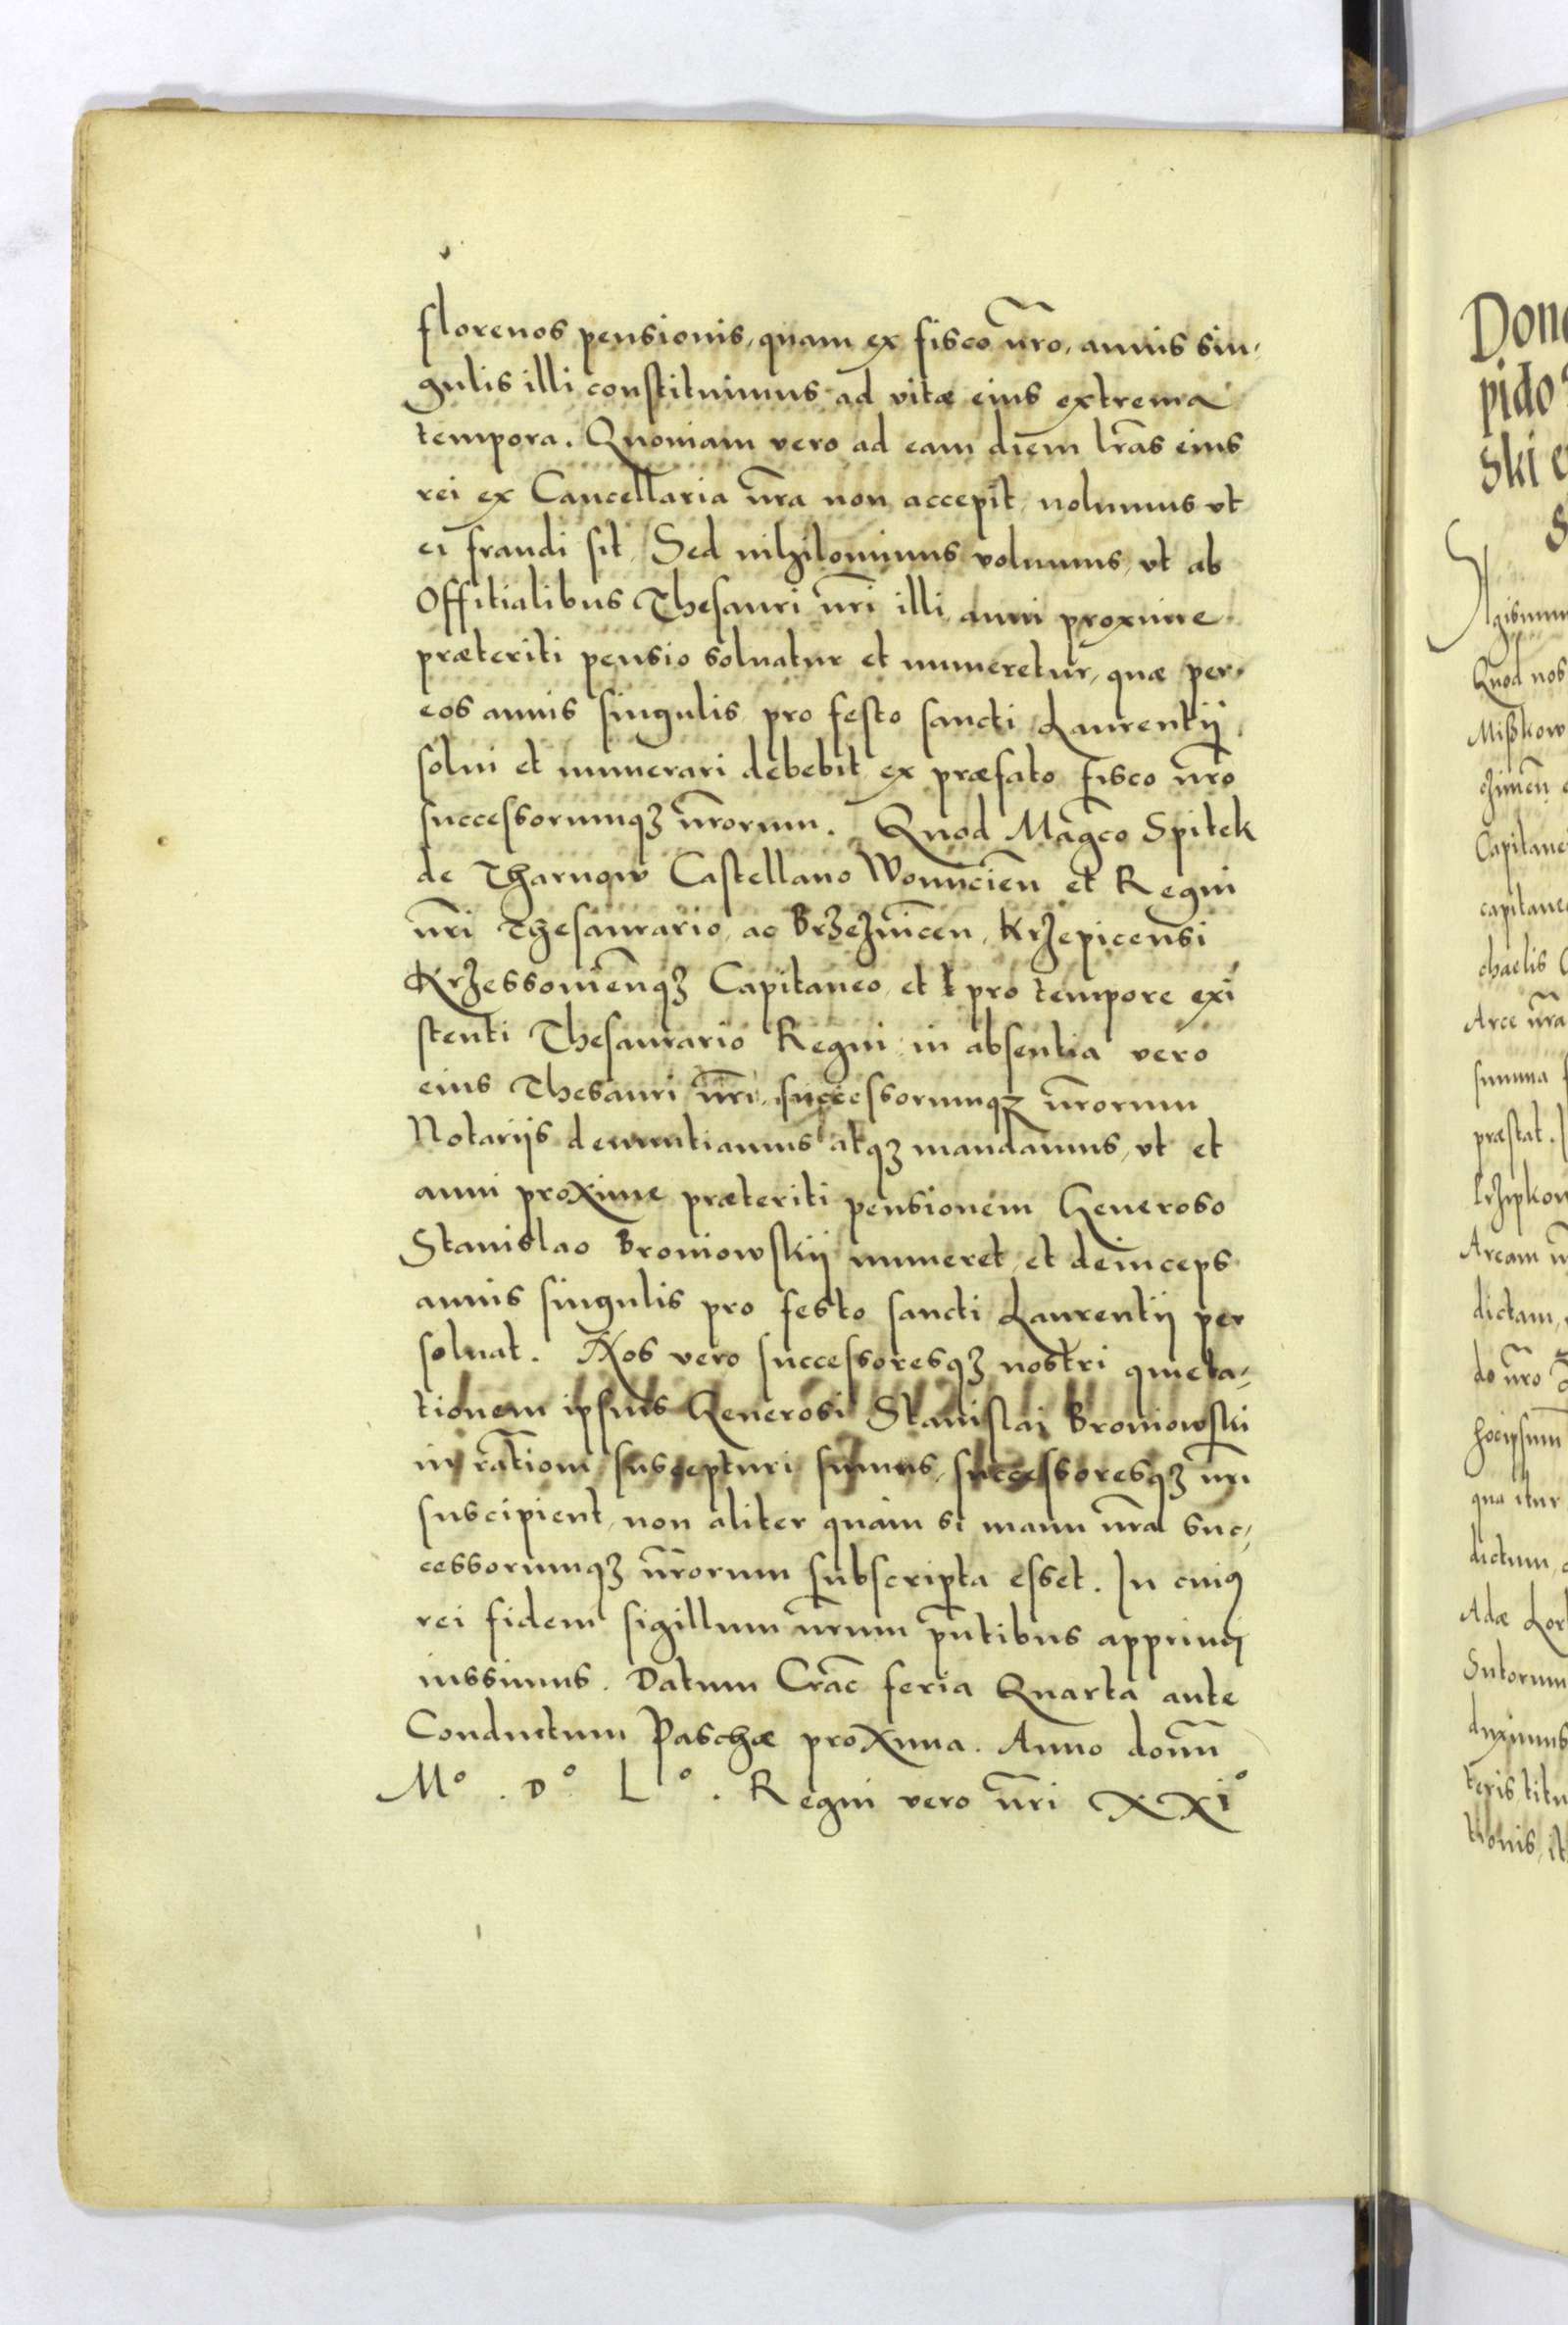 florenos pensionis, quam ex fisco nr̃o, annis sin-
gulis illi constituimus ad vitæ eius extrema
tempora. Quoniam vero ad eam diem lr̃as eius
rei ex Cancellaria nr̃a non accepit, nolumus vt
ei fraudi sit, Sed nihilominus volumus, vt ab
Offitialibus Thesauri nr̃i illi anni proxime
præteriti pensio soluatur et numeretur, quæ per
eos annis singulis pro festo sancti Laurentij
solui et numerari debebit, ex præfato fisco nr̃o
successorumqꝫ nr̃orum. Quod Mag̃co Spitek
de Tharnow Castellano Woynicień et Regni
nr̃i Thesaurario, ac Brzeznicen̄, Krzepicensi
Krzessouien̄qꝫ Capitaneo, et t pro tempore exi
stenti Thesaurario Regni, in absentia vero
eius Thesauri nr̃i, successorumqꝫ nr̃orum
Notarijs denuntiamus atqꝫ mandamus, vt et
anni proxime præteriti pensionem Generoso
Stanislao Broniowskij numeret, et deinceps
annis singulis pro festo sancti Laurentij per
soluat. Nos vero successoresqꝫ nostri quieta-
tionem ipsius Generosi Stanislai Broniowski
in rat̃iom suscepturi sumus, successoresqꝫ nr̃i
suscipient, non aliter quàm si manu nr̃a suc-
cessorumqꝫ nr̃orum subscripta esset. In cuiꝰ
rei fidem sigillum nr̃um pñtibus apprimi
iussimus. Datum Crac̄ feria Quarta ante
Conductum Paschæ proxima. Anno domī
Mº. Dº. Lº. Regni vero nr̃i XXIº
Don
pido
ski
Quod nos
Capitane
capitane
chaelis
Arce nr̃a
summa
præstat.
Arcam
dictam,
do nr̃o
hocipsum
qua itur
dictum
Adæ Lor
Sutorum
duximus